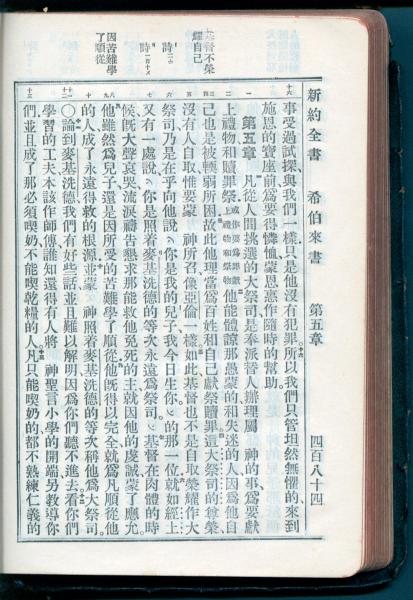 新約全書 希伯來書 第五章 四百八十四
基督不榮
耀自己
詩
詩
因苦難學
了順從
十六
事受過試探與我們一樣只是他沒有犯罪所以我們只管坦然無懼的來到
施恩的寶座前爲要得憐恤蒙恩惠作隨時的幫助
一
第五章 凡從人間挑選的大祭司是奉派替人辦理屬 神的事爲要獻
二
上禮物和贖罪祭他能體諒那愚蒙的和失迷的人因爲他自
三四
己也是被輭弱所困故此他理當爲百姓和自己獻祭贖罪這大祭司的尊榮
五
沒有人自取惟要蒙 神所召像亞倫一樣如此基督也不是自取榮耀作大
六
祭司乃是在乎向他說你是我的兒子我今日生你的那一位就如經上
七
又有一處說你是照着麥基洗德的等次永遠爲祭司基督在肉體的時
八
候旣大聲哀哭流淚禱告懇求那能救他免死的主就因他的虔誠蒙了應允
九
他雖然爲兒子還是因所受的苦難學了順從他旣得以完全就爲凡順從他
十
的人成了永遠得救的根源並蒙 神照着麥基洗德的等次稱他爲大祭司
十一
○論到麥基洗德我們有好些話並且難以解明因爲你們聽不進去看你們
學習的工夫本該作師傅誰知還得有人將 神聖言小學的開端另教導你
十三
們並且成了那必須喫奶不能喫乾糧的人凡只能喫奶的都不熟練仁義的